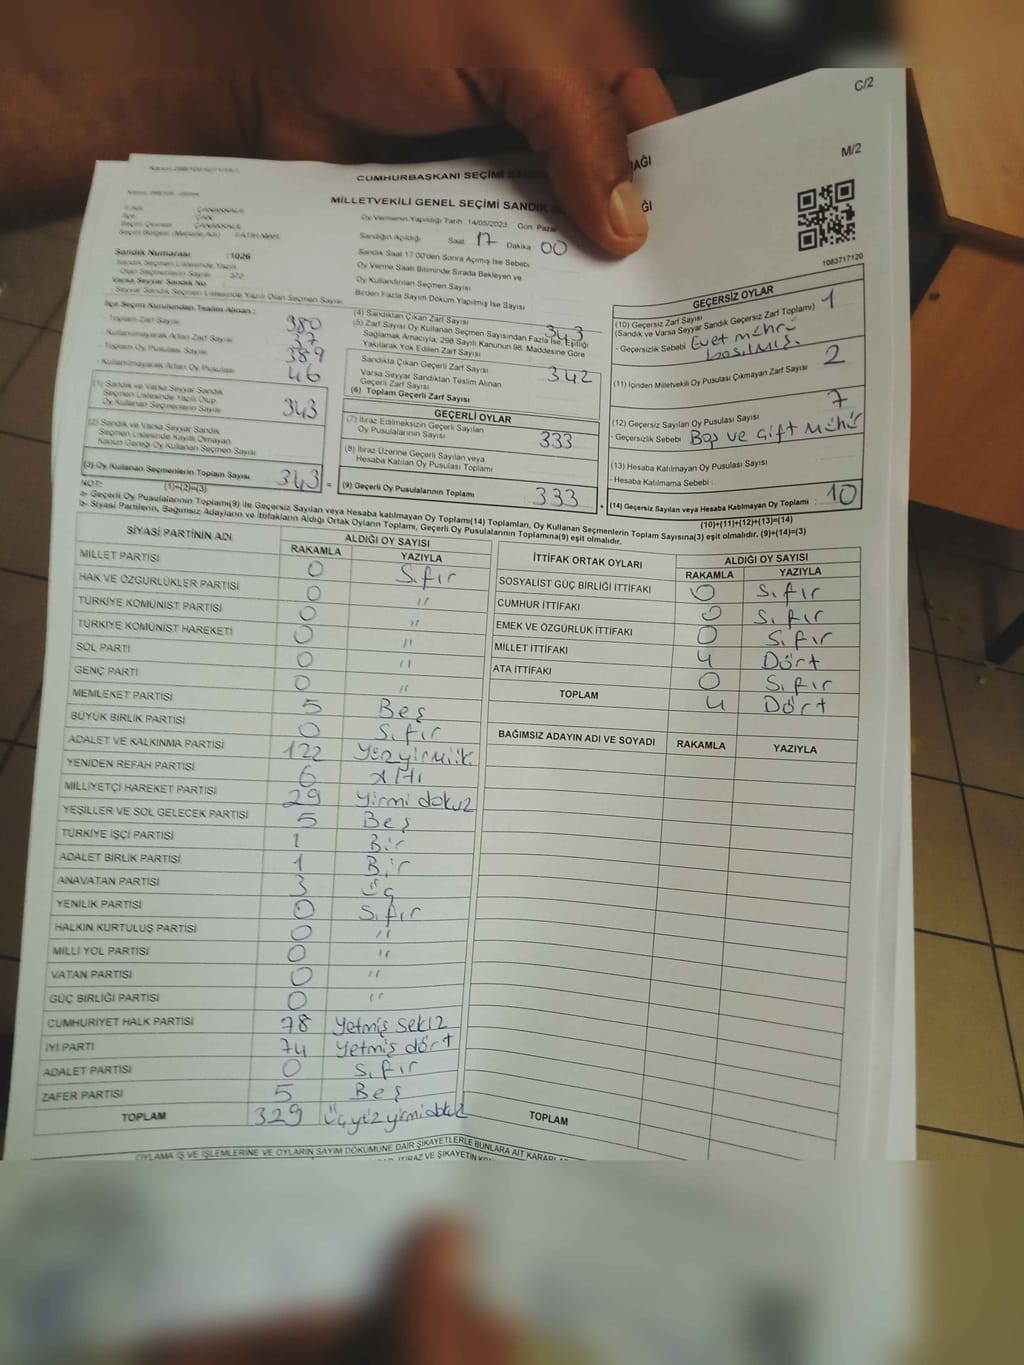 C/2
M/2
AĞI
CUMHURBAŞKANI SEÇİMİ
MİLLETVEKİLİ GENEL SEÇİMİ SANDIK
ĞI
Oy Vermenin Yapıldığı Tarih 14/05/2023 Gün Pazar
Sandığın Açıldığı Saat 17 Dakika 00
Sandık Saat 17:00'den Sonra Açılmış İse Sebebi
Oy Verme Saati Bitiminde Sırada Bekleyen ve
Oy Kullandırılan Seçmen Sayısı
Birden Fazla Sayım Döküm Yapılmış İse Sayısı
ÇANAKKALE
ÇAN
ÇANAKKALE
Sandık Numarası :1026
Sandık Seçmen Listesinde Yazılı
Olan Seçmenlerin Sayısı
Varsa Seyyar Sandık No
Seyyar Sandık Seçmen Listesinde Yazılı Olan Seçmen Sayısı
İlçe Seçim Kurulundan Teslim Alınan :
- Toplam Zarf Sayısı 380
- Kullanılmayarak Artan Zarf Sayısı 37
- Toplam Oy Pusulası Sayısı 389
- Kullanılmayarak Artan Oy Pusulası 46
(1) Sandık ve Varsa Seyyar Sandık
Seçmen Listesinde Yazılı Olup
Oy Kullanan Seçmenlerin Sayısı 343
(2) Sandık ve Varsa Seyyar Sandık
Seçmen Listesinde Kayıtlı Olmayan
Kanun Gereği Oy Kullanan Seçmen Sayısı
(3) Oy Kullanan Seçmenlerin Toplam Sayısı 343 =
(1)+(2)=(3)
(4) Sandıktan Çıkan Zarf Sayısı 343
(5) Zarf Sayısı Oy Kullanan Seçmen Sayısından Fazla İse, Eşitliği
Sağlamak Amacıyla; 298 Sayılı Kanunun 98. Maddesine Göre
Yakılarak Yok Edilen Zarf Sayısı
Sandıkta Çıkan Geçerli Zarf Sayısı 342
Varsa Seyyar Sandıktan Teslim Alınan
Geçerli Zarf Sayısı
(6) Toplam Geçerli Zarf Sayısı
GEÇERLİ OYLAR
(7) İtiraz Edilmeksizin Geçerli Sayılan
Oy Pusulalarının Sayısı 333
(8) İtiraz Üzerine Geçerli Sayılan veya
Hesaba Katılan Oy Pusulası Toplamı
(9) Geçerli Oy Pusulalarının Toplamı 333 +
1083717120
GEÇERSİZ OYLAR
(10) Geçersiz Zarf Sayısı
(Sandık ve Varsa Seyyar Sandık Geçersiz Zarf Toplamı) 1
- Geçersizlik Sebebi Evet mührü
basılmış.
(11) İçinden Milletvekili Oy Pusulası Çıkmayan Zarf Sayısı 2
(12) Geçersiz Sayılan Oy Pusulası Sayısı 7
- Geçersizlik Sebebi Boş ve Çift Mühür
(13) Hesaba Katılmayan Oy Pusulası Sayısı
- Hesaba Katılmama Sebebi :
(14) Geçersiz Sayılan veya Hesaba Katılmayan Oy Toplamı : 10
(10)+(11)+(12)+(13)=(14)
NOT:
a- Geçerli Oy Pusulalarının Toplamı(9) ile Geçersiz Sayılan veya Hesaba katılmayan Oy Toplamı(14) Toplamları, Oy Kullanan Seçmenlerin Toplam Sayısına(3) eşit olmalıdır. (9)+(14)=(3)
b- Siyasi Partilerin, Bağımsız Adayların ve İttifakların Aldığı Ortak Oyların Toplamı, Geçerli Oy Pusulalarının Toplamına(9) eşit olmalıdır.
SİYASİ PARTİNİN ADI ALDIĞI OY SAYISI
RAKAMLA YAZIYLA
MİLLET PARTİSİ 0 Sıfır
HAK VE ÖZGÜRLÜKLER PARTİSİ 0 "
TÜRKİYE KOMÜNİST PARTİSİ 0 "
TÜRKİYE KOMÜNİST HAREKETİ 0
SOL PARTİ 0 "
GENÇ PARTİ 0 "
MEMLEKET PARTİSİ 5 Beş
BÜYÜK BİRLİK PARTİSİ 0 Sıfır
ADALET VE KALKINMA PARTİSİ 122 Yüzyirmiik
YENİDEN REFAH PARTİSİ 6 Altı
MİLLİYETÇİ HAREKET PARTİSİ 29 Yirmi dokuz
YEŞİLLER VE SOL GELECEK PARTİSİ 5 Beş
TÜRKİYE İŞÇİ PARTİSİ 1 Bir
ADALET BİRLİK PARTİSİ 1 Bir
ANAVATAN PARTİSİ 3 Üç
YENİLİK PARTİSİ 0 Sıfır
HALKIN KURTULUŞ PARTİSİ 0 "
MİLLİ YOL PARTİSİ 0 "
VATAN PARTİSİ 0 "
GÜÇ BİRLİĞİ PARTİSİ 0 "
CUMHURİYET HALK PARTİSİ 78 Yetmiş sekiz
İYİ PARTİ 74 Yetmiş dört
ADALET PARTİSİ 0 Sıfır
ZAFER PARTİSİ 5 Beş
TOPLAM 329
İTTİFAK ORTAK OYLARI ALDIĞI OY SAYISI
RAKAMLA YAZIYLA
SOSYALİST GÜÇ BİRLİĞİ İTTİFAKI 0 Sıfır
CUMHUR İTTİFAKI 0 Sıfır
EMEK VE ÖZGÜRLÜK İTTİFAKI 0 Sıfır
MİLLET İTTİFAKI 4 Dört
ATA İTTİFAKI 0 Sıfır
TOPLAM 4 Dört
BAĞIMSIZ ADAYIN ADI VE SOYADI RAKAMLA YAZIYLA
TOPLAM
OYLAMA İŞ VE İŞLEMLERİNE VE OYLARIN SAYIM DÖKÜMÜNE DAİR ŞİKAYETLERLE BUNLARA AİT KARARL
İTİRAZ VE ŞİKAYETİN